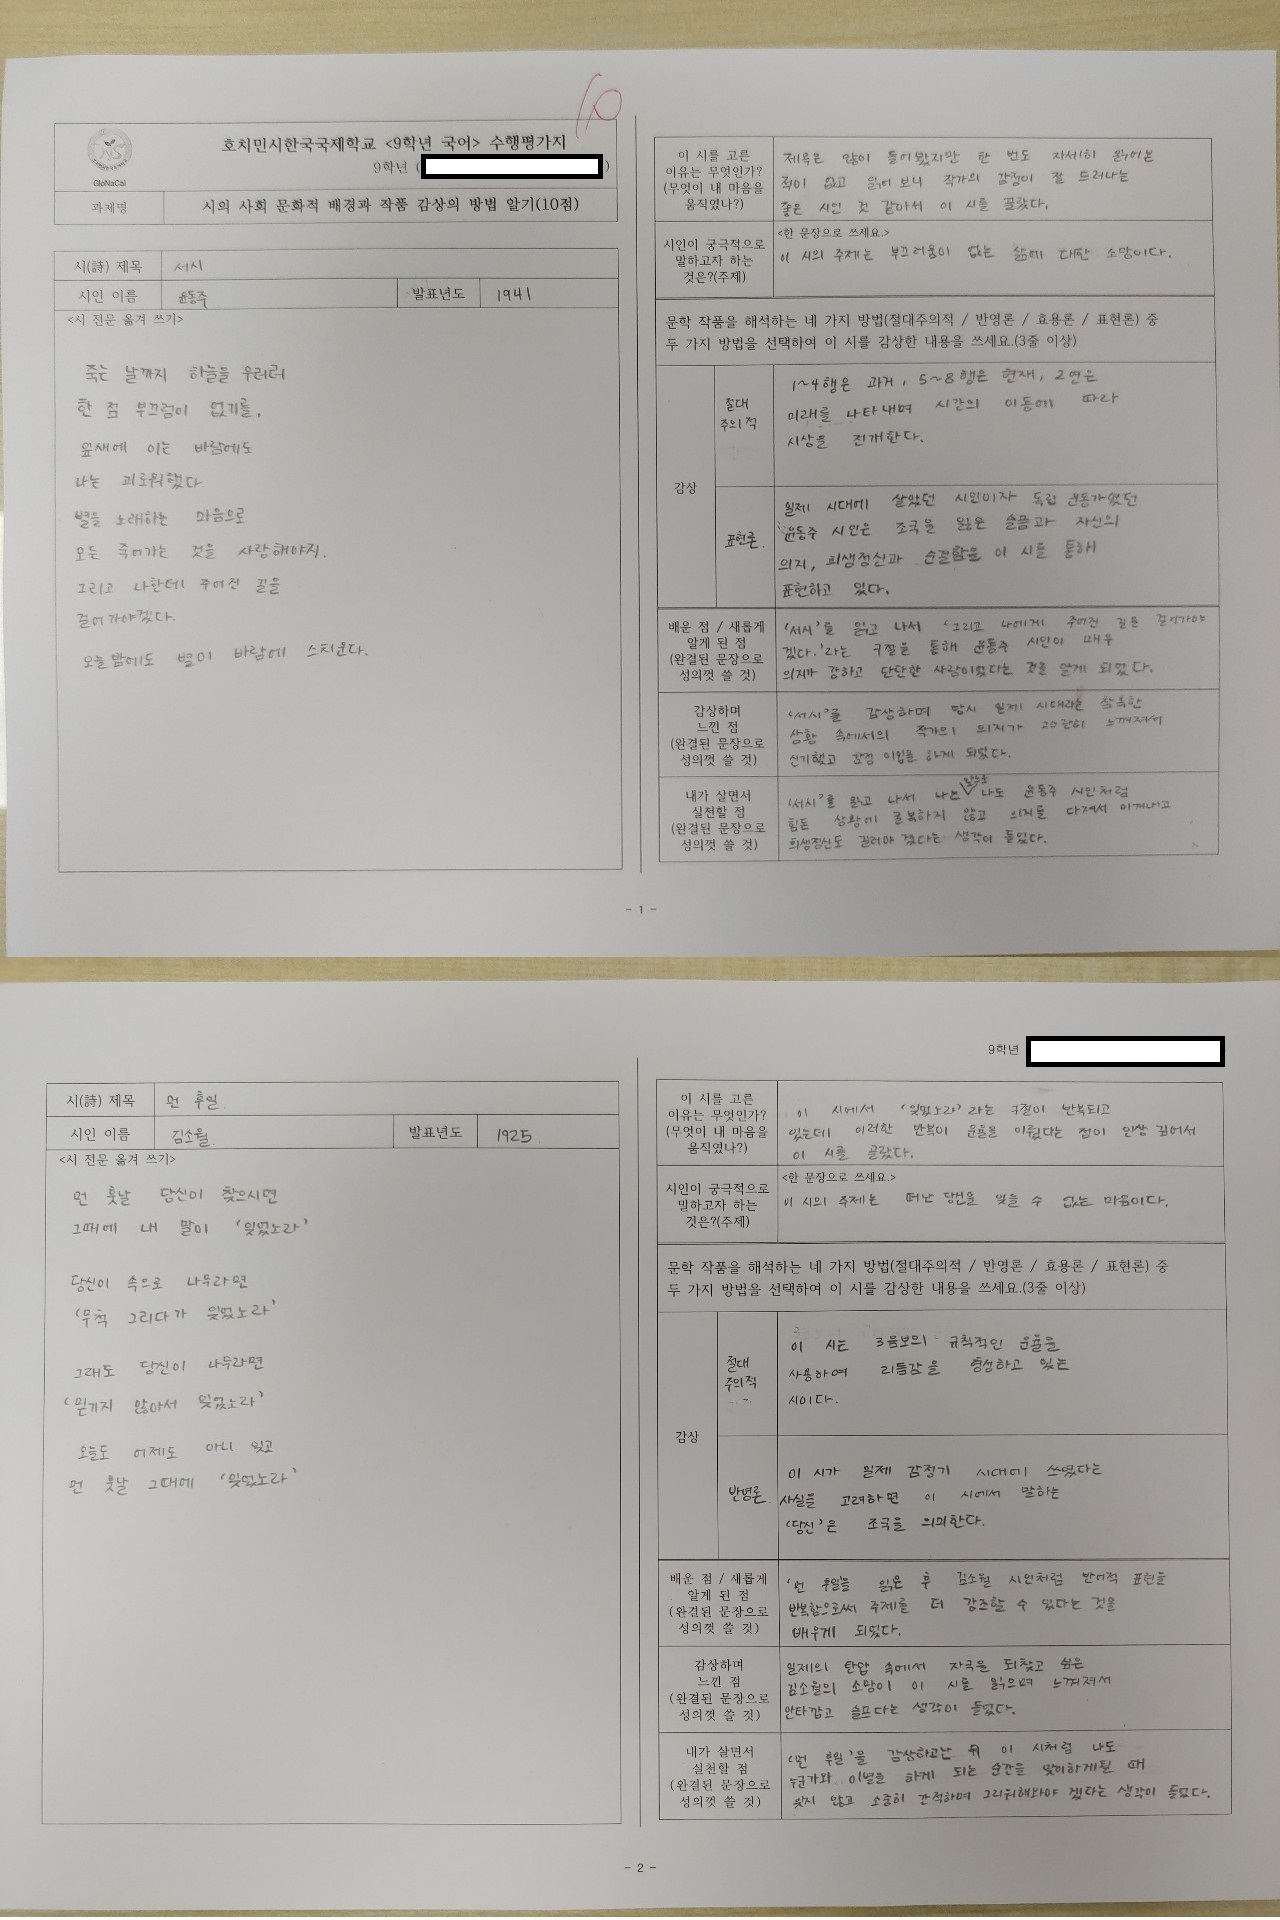 10
GloNaCal
호치민시한국국제학교 <9학년 국어> 수행평가지
9학년 ( )
과제명
시의 사회 문화적 배경과 작품 감상의 방법 알기(10점)
시(詩) 제목
서시
시인 이름
윤동주
발표년도
1941
<시 전문 옮겨 쓰기>
죽는 날까지 하늘을 우러러
한 점 부끄럼이 없기를,
잎새에 이는 바람에도
나는 괴로워했다
별을 노래하는 마음으로
모든 죽어가는 것을 사랑해야지.
그리고 나한테 주어진 길을
걸어가야겠다.
오늘 밤에도 별이 바람에 스치운다.
이 시를 고른
이유는 무엇인가?
(무엇이 내 마음을
움직였나?)
제목은 많이 들어봤지만 한 번도 자세히 읽어본
적이 없고 읽어 보니 작가의 감정이 잘 드러나는
좋은 시인 것 같아서 이 시를 골랐다.
시인이 궁극적으로
말하고자 하는
것은?(주제)
<한 문장으로 쓰세요.>
이 시의 주제는 부끄러움이 없는 삶에 대한 소망이다.
문학 작품을 해석하는 네 가지 방법(절대주의적 / 반영론 / 효용론 / 표현론) 중
두 가지 방법을 선택하여 이 시를 감상한 내용을 쓰세요.(3줄 이상)
감상
절대
주의적
1~4행은 과거, 5~8행은 현재, 2연은
미래를 나타내며 시간의 이동에 따라
시상을 전개한다.
표현론
일제 시대에 살았던 시인이자 독립 운동가였던
윤동주 시인은 조국을 잃은 슬픔과 자신의
의지, 희생정신과 순결함을 이 시를 통해
표현하고 있다.
배운 점 / 새롭게
알게 된 점
(완결된 문장으로
성의껏 쓸 것)
'서시'를 읽고 나서 '그리고 나에게 주어진 길을 걸어가야
겠다.'라는 구절을 통해 윤동주 시인이 매우
의지가 강하고 단단한 사람이었다는 것을 알게 되었다.
감상하며
느낀 점
(완결된 문장으로
성의껏 쓸 것)
'서시'를 감상하며 당시 일제 시대라는 참혹한
상황 속에서의 작가의 의지가 고스란히 느껴져서
신기했고 감정 이입을 하게 되었다.
내가 살면서
실천할 점
(완결된 문장으로
성의껏 쓸 것)
'서시'를 읽고 나서 나는 나도 윤동주 시인처럼
힘든 상황에 굴복하지 않고 의지를 다져서 이겨내고
희생정신도 길러야 겠다는 생각이 들었다.
- 1 -
9학년
시(詩) 제목
먼 후일
시인 이름
김소월
발표년도
1925
<시 전문 옮겨 쓰기>
먼 훗날 당신이 찾으시면
그때에 내 말이 '잊었노라'
당신이 속으로 나무라면
'무척 그리다가 잊었노라'
그래도 당신이 나무라면
'믿기지 않아서 잊었노라'
오늘도 어제도 아니 잊고
먼 훗날 그때에 '잊었노라'
이 시를 고른
이유는 무엇인가?
(무엇이 내 마음을
움직였나?)
이 시에서 '잊었노라'라는 구절이 반복되고
있는데 이러한 반복이 운율을 이뤘다는 점이 인상 깊어서
이 시를 골랐다.
시인이 궁극적으로
말하고자 하는
것은?(주제)
<한 문장으로 쓰세요.>
이 시의 주제는 떠난 당신을 잊을 수 없는 마음이다.
문학 작품을 해석하는 네 가지 방법(절대주의적 / 반영론 / 효용론 / 표현론) 중
두 가지 방법을 선택하여 이 시를 감상한 내용을 쓰세요.(3줄 이상)
감상
절대
주의적
이 시는 3음보의 규칙적인 운율을
사용하여 리듬감을 형성하고 있는
시이다.
반영론
이 시가 일제 강점기 시대에 쓰였다는
사실을 고려하면 이 시에서 말하는
'당신'은 조국을 의미한다.
배운 점 / 새롭게
알게 된 점
(완결된 문장으로
성의껏 쓸 것)
'먼 후일'을 읽은 후 김소월 시인처럼 반어적 표현을
반복함으로써 주제를 더 강조할 수 있다는 것을
배우게 되었다.
감상하며
느낀 점
(완결된 문장으로
성의껏 쓸 것)
일제의 탄압 속에서 자국을 되찾고 싶은
김소월의 소망이 이 시를 읽으며 느껴져서
안타깝고 슬프다는 생각이 들었다.
내가 살면서
실천할 점
(완결된 문장으로
성의껏 쓸 것)
'먼 후일'을 감상하고난 뒤 이 시처럼 나도
누군가와 이별을 하게 되는 순간을 맞이하게될 때
잊지 않고 소중히 간직하며 그리워해봐야 겠다는 생각이 들었다.
- 2 -